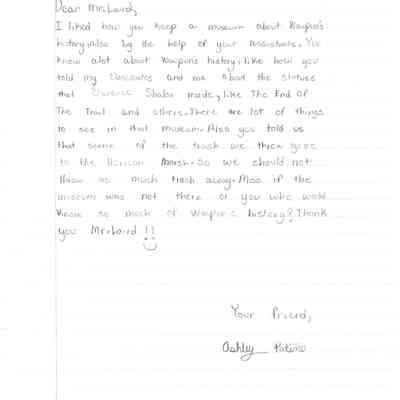 Dear Mr. Laird,
I liked how you keep a museum about Waupun's
history, also by the help of your assistants. You
know alot about Waupun's history, like how you
told my classmates and me about the statues
that Clarence Shaler made, like The End Of
The Trail and others. There are lot of things
to see in that museum. Also you told us
that some of the trash we throw goes
to the Horicon Marsh. So we should not
throw as much trash away. Also if the
museum was not there or you who would
know so much of Waupun's history? Thank
you Mr. Laird!!
Your friend,
Ashley